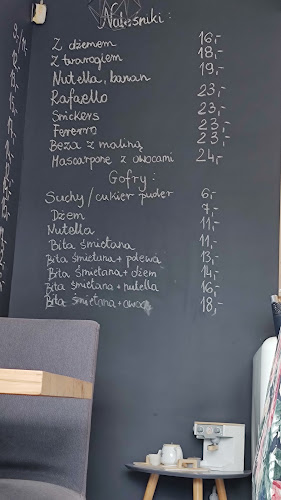 Naleśniki:
Z dżemem 16,-
Z twarogiem 18,-
Nutella, banan 19,-
Rafaello 23,-
Snickers 23,-
Ferrerro 23,-
Beza z maliną 23,-
Mascarpone z owocami 24,-
Gofry:
Suchy/cukier puder 6,-
Dżem 7,-
Nutella 11,-
Bita śmietana 11,-
Bita śmietana + polewa 13,-
Bita śmietana + dżem 14,-
Bita śmietana + nutella 16,-
Bita śmietana + owoce 18,-